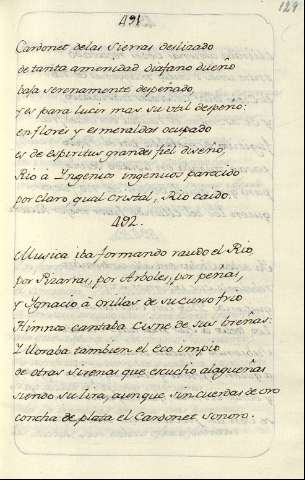 129
491
Cardonet delas Sierras deslizado
de tanta amenidad diafano dueño
baja serenamente despeñado,
y es para lucir mas su util despeño:
en flores y esmeraldas ocupado
es de espiritus grandes fiel diseño,
Rio à Ingenios ingenuos parecido
por claro, qual Cristal, Rio caido.
492.
Musica iba formando raudo el Rio
por Pizarras, por Arboles, por peñas,
y Ignacio à orillas de su curso frio
Himnos cantaba Cisne de sus breñas:
Y lloraba tambien el eco impio
de otras Sirenas que escuchò alagueñas
siendo su lira, aunque sin cuerdas de oro
concha de plata el Cardonet sonoro.